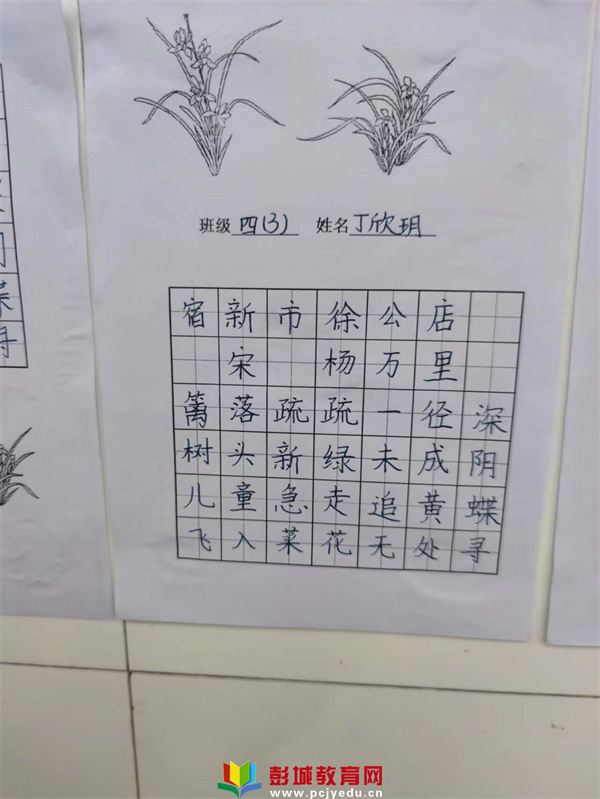 班级 四(3) 姓名 丁欣玥
宿新市徐公店
宋 杨万里
篱落疏疏一径深
树头新绿未成阴
儿童急走追黄蝶
飞入菜花无处寻
彭城教育网
www.pcjyedu.cn